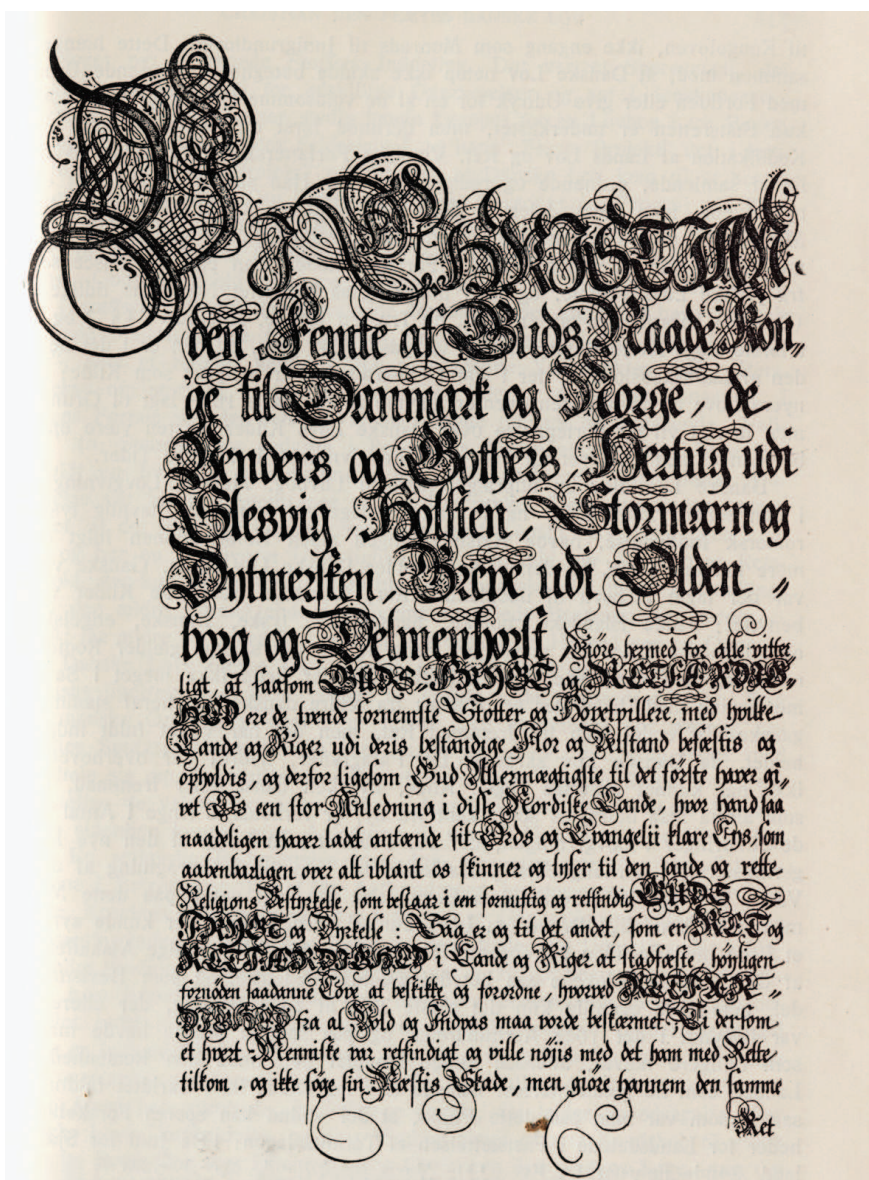 VI CHRISTIAN
den Femte af Guds Naade Kon„
ge til Danmark og Norge, de
Venders og Gothers, Hertug udi
Slesvig, Holsten, Stormarn og
Dytmersken, Greve udi Olden„
borg og Delmenhorst, Giöre hermed for alle vitter
ligt, at saasom GUDS-FRYGT og RETFÆRDIG-
HED ere de tvende fornemste Stötter og Hovetpillere, med hvilke
Lande og Riger udi deris bestandige Flor og Velstand befæstis og
opholdis, og derfor ligesom Gud Allermægtigste til det förste haver gi„
vet Os een stor Anledning i disse Nordiske Lande, hvor hand saa
naadeligen haver ladet antænde sit Ords og Evangelii klare Lys, som
aabenbarligen over alt iblant os skinner og lyser til den sande og rette
Religions Bestyrkelse, som bestaar i een fornuftig og retsindig GUDS
FRYGT og Dyrkelse : Saa er og til det andet, som er RET og
RETFÆRDIGHED i Lande og Riger at stadfæste, höyligen
fornöden saadanne Love at beskikke og forordne, hvorved RETFÆR„
DIGHED fra al Vold og Indpas maa vorde beskærmet. Ti dersom
et hvert Menniske var retsindigt og ville nöjis med det ham med Rette
tilkom. og ikke söge sin Næstis Skade, men giöre hannem den samme
Ret